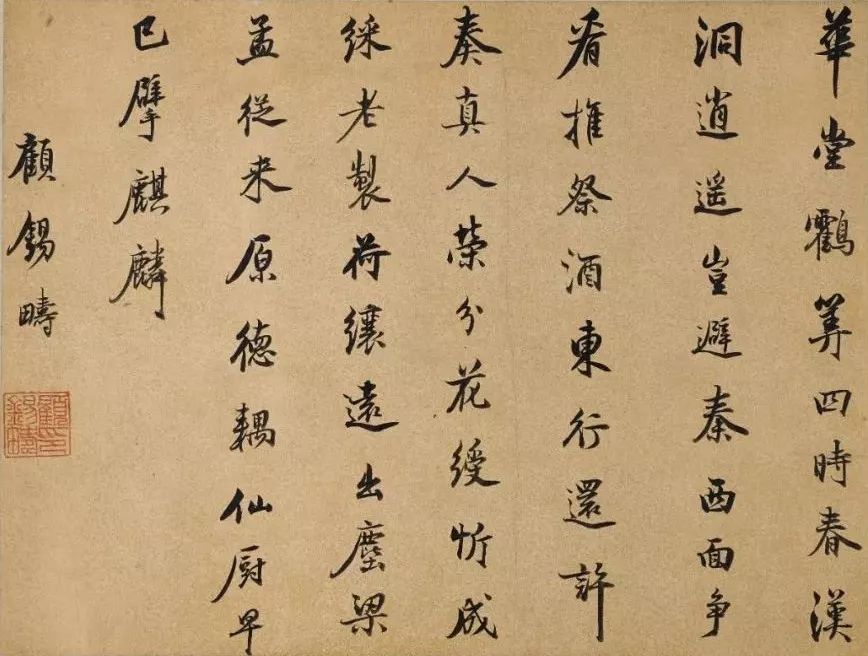 華堂鸖筭四時春漢
洞逍遥豈避秦西面争
看推祭酒東行還許
奏真人榮分花綬忻成
綵老製荷纕遠出塵梁
孟從来原德耦仙厨早
已擘麒麟
顧錫疇